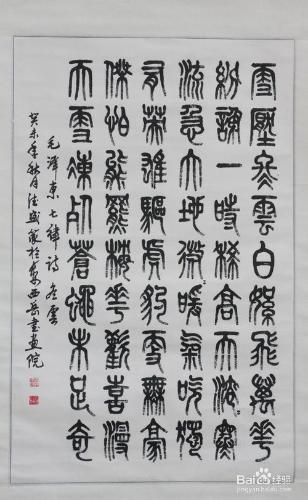 雪壓冬雲白絮飛萬花
紛謝一時稀高天滾〻寒
流急大地微〻暖氣吹獨
有英雄驅虎豹更無豪
傑怕熊羆梅花歡喜漫
天雪凍死蒼蠅未足奇
毛澤東七律詩冬雲
癸未年秋月篆於西岳書畫院
Baidu 经验
jingyan.baidu.com